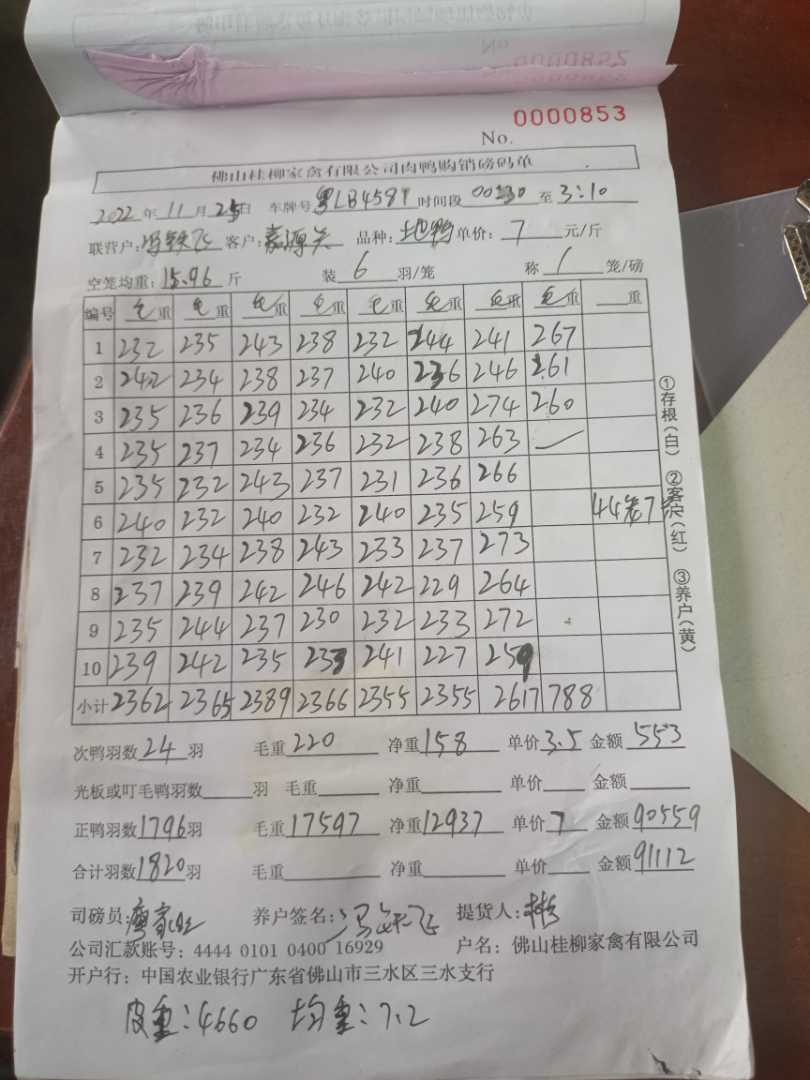 0000853
No.
佛山桂柳家禽有限公司肉鸭购销磅码单
2022年11月25日 车牌号粤LB4591 时间段00:30至3:10
联营户:冯铁飞 客户:嘉源兴 品种:地鸭 单价:7元/斤
空笼均重:15.96斤 装6羽/笼 称1笼/磅
编号 毛重 毛重 毛重 毛重 毛重 毛重 毛重 毛重 重
1 232 235 243 238 232 244 241 267
2 242 234 238 237 240 236 246 261
3 235 236 239 234 232 240 274 260
4 235 237 234 236 232 238 263 —
5 235 232 243 237 231 236 266
6 240 232 240 232 240 235 259 44笼7
7 232 234 238 243 233 237 273
8 237 239 242 246 242 229 264
9 235 244 237 230 232 233 272
10 239 242 235 233 241 227 259
小计 2362 2365 2389 2366 2355 2355 2617 788
①存根(白) ②客户(红) ③养户(黄)
次鸭羽数24羽 毛重220 净重158 单价3.5 金额553
光板或叮毛鸭羽数 羽 毛重 净重 单价 金额
正鸭羽数1796羽 毛重17597 净重12937 单价7 金额90559
合计羽数1820羽 毛重 净重 单价 金额91112
司磅员:廖家旺 养户签名:冯铁飞 提货人:
公司汇款账号:4444 0101 0400 16929 户名:佛山桂柳家禽有限公司
开户行:中国农业银行广东省佛山市三水区三水支行
皮重:4660 均重:7.2